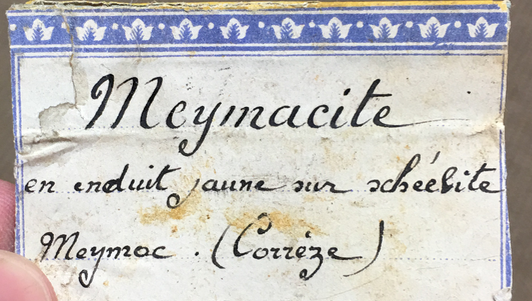 Meymacite
en enduit jaune sur schéelite
Meymac . (Corrèze)